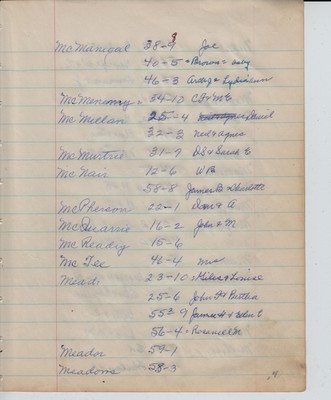 McManigal 38-9 Joe
40-5 = Brown =
46-3 &
McMenimy = 34-10
McMillan 25-4 David
32-3 Ned & Agnes
McMurtrie 31-9 DS & Sarah E
McNair 12-6 W B
58-8 James B & Charlotte
McPherson 22-1 Dan & A
McQuarrie 16-2 John & M
McReady 15-6
McTee 46-4 Mrs
Mead 23-10 = Giles & Louise
25-6 John H & Bertha
55-9 James H & Helen E
56-4 =
Meador 59-1
Meadows 58-3